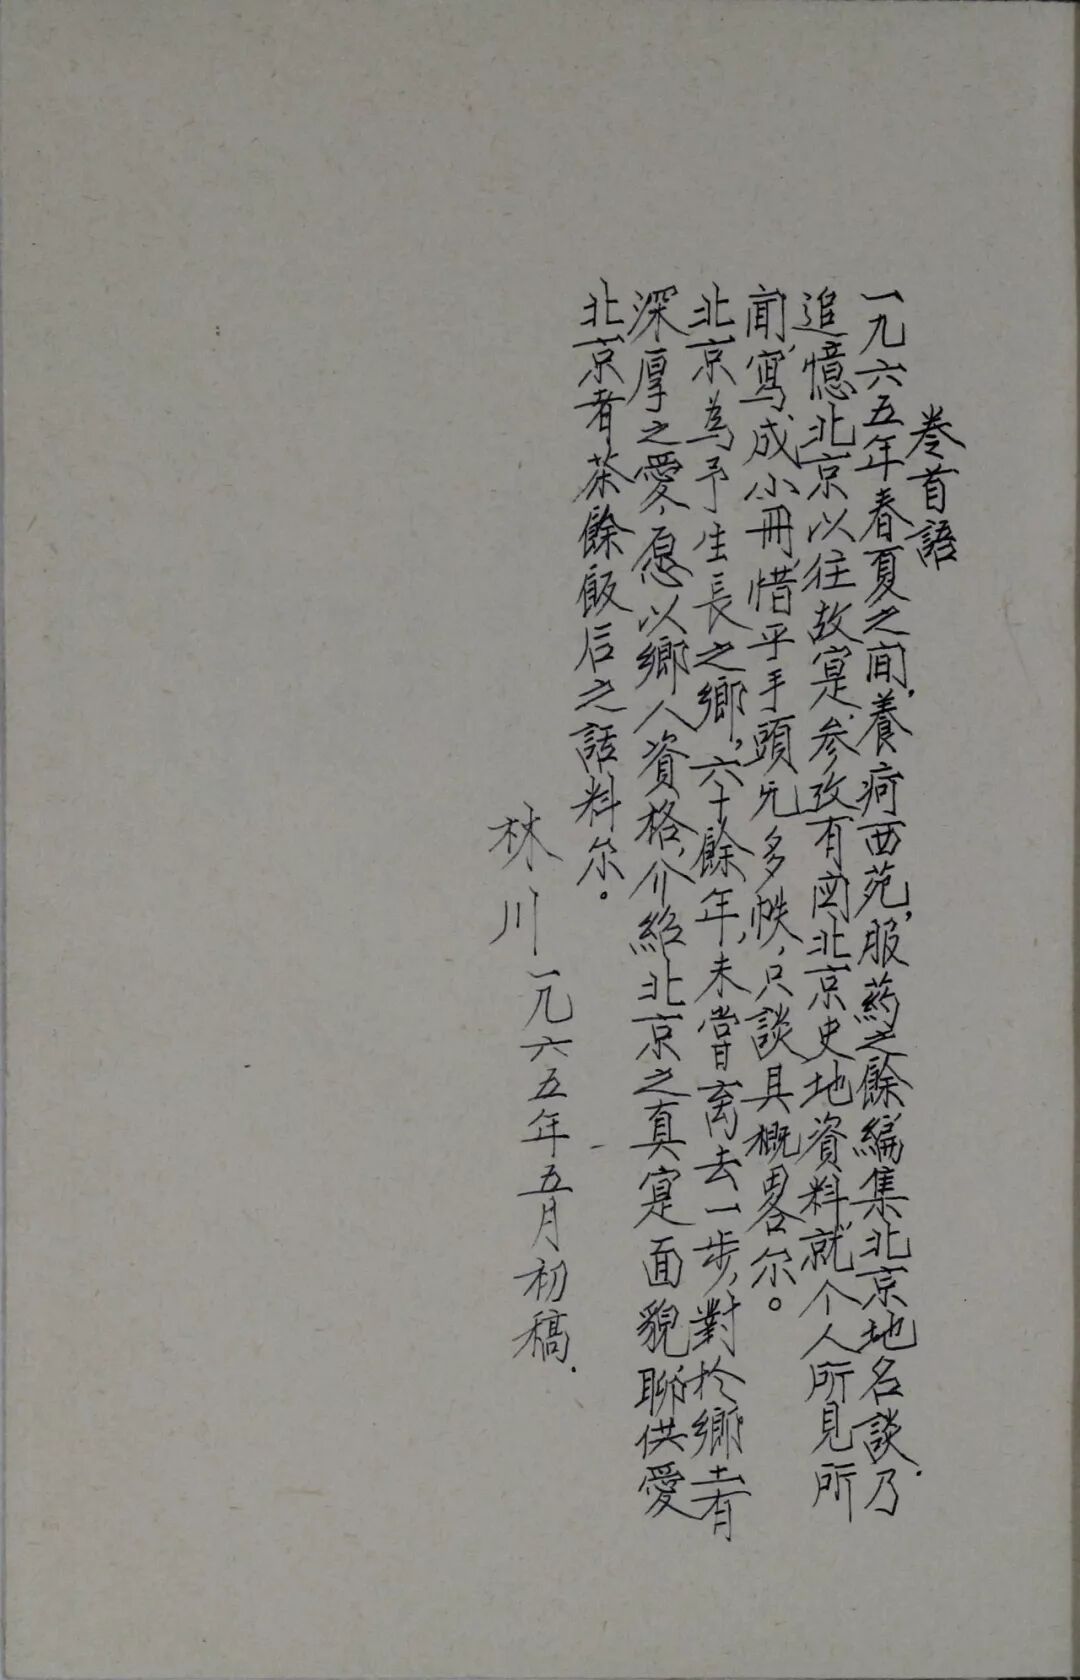 卷首語
一九六五年春夏之间，養疴西苑，服药之餘，編集北京地名談，乃
追憶北京以往故寔，参攷有関北京史地資料，就个人所見所
闻，寫成小冊，惜乎手頭无多帙，只談其概畧尔。
北京為予生長之鄉，六十餘年，未嘗离去一步，對於鄉土有
深厚之愛，愿以鄉人資格，介紹北京之真寔面貌，聊供愛
北京者茶餘飯后之話料尔。
林川一九六五年五月初稿.